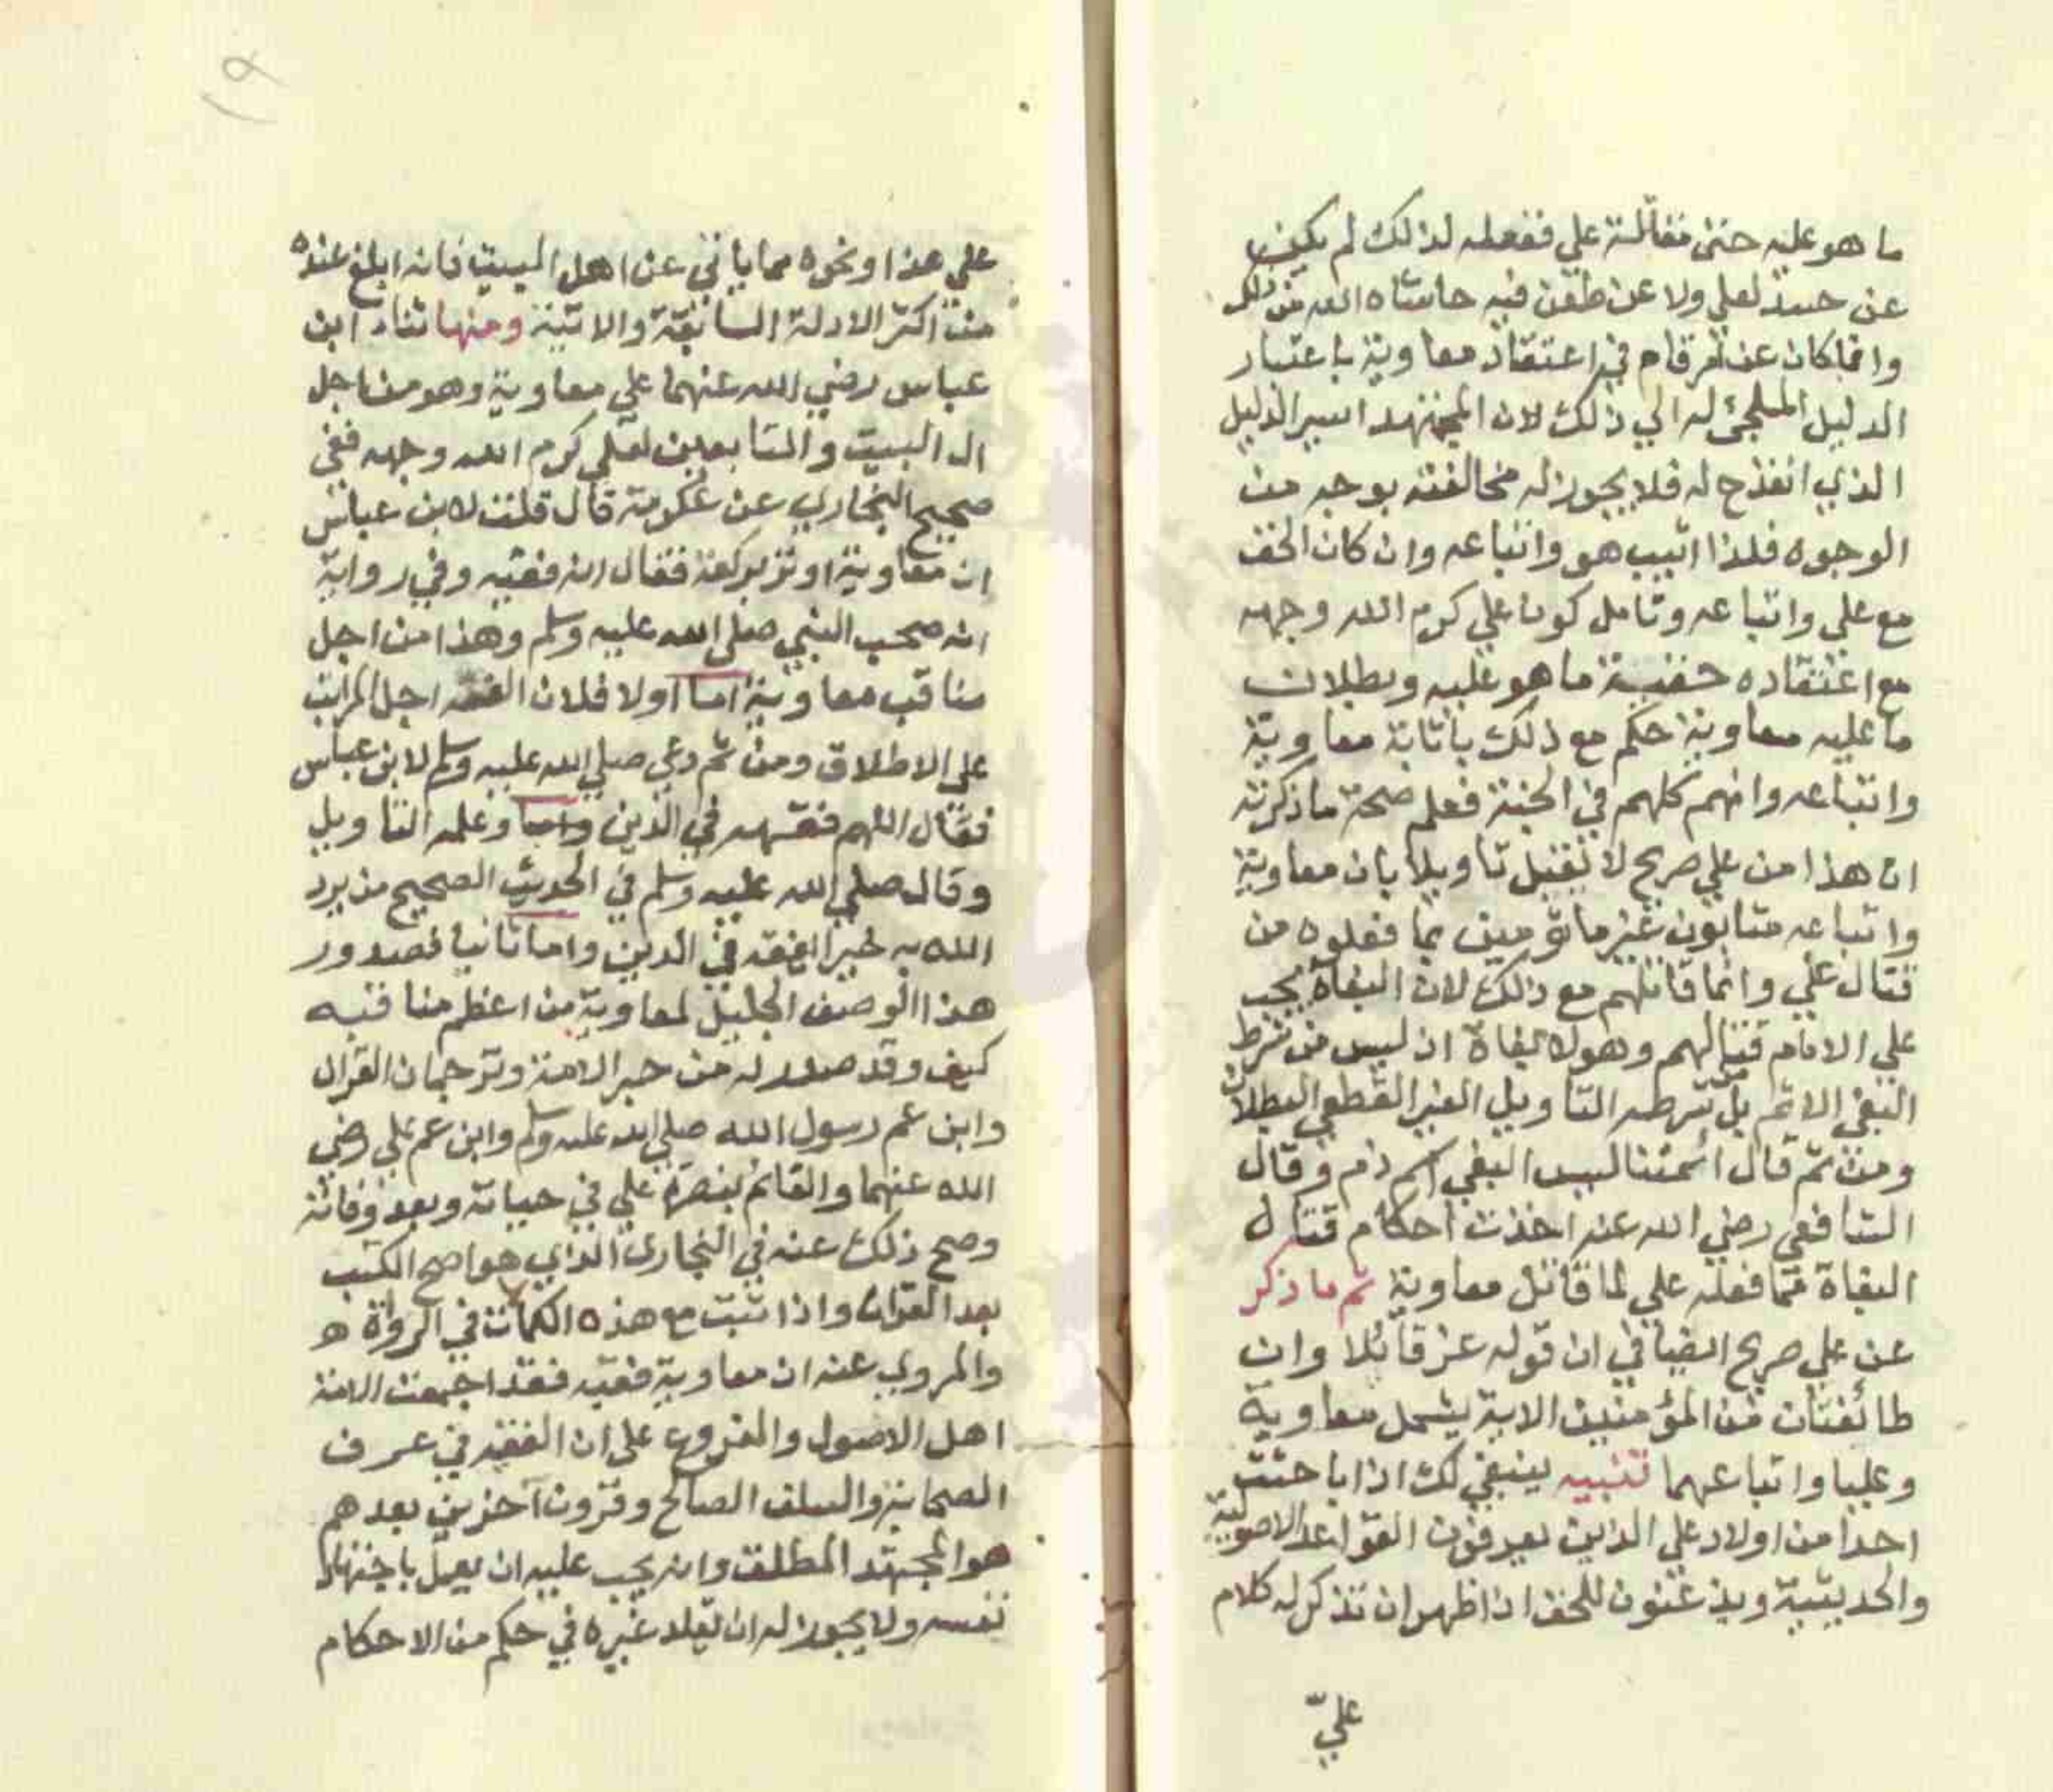 ما هو عليه حتى مقاتلة علي ففعله لذلك لم يكن
عن حسد لعلي ولا عن طعن فيه حاشاه الله من ذلك
وانما كان عن امر قام في اعتقاد معاوية باعتبار
الدليل الملجئ له الي ذلك لان المجتهد اسير الدليل
الذي انقدح له فلا يجوز له مخالفته بوجه من
الوجوه فلذا اثيب هو واتباعه وان كان الحق
مع علي واتباعه وتامل كون علي كرم الله وجهه
مع اعتقاده حقية ما هو عليه وبطلان
ما عليه معاوية حكم مع ذلك باثابة معاوية
واتباعه وانهم كلهم في الجنة فعلم صحة ما ذكرته
ان هذا من علي صريح لا يقبل تاويلا بان معاوية
واتباعه مثابون غير ماثومين بما فعلوه من
قتال علي وانما قاتلهم مع ذلك لان البغاة يجب
علي الامام قتالهم وهولا بغاة اذ ليس من شرط
البغي الاثم بل شرطه التاويل الغير القطعي البطلان
ومن ثم قال ائمتنا ليس البغي اسم ذم وقال
الشافعي رضي الله عنه اخذت احكام قتال
البغاة مما فعله علي لما قاتل معاوية ثم ما ذكر
عن علي صريح ايضا في ان قوله عز قائلا وان
طائفتان من المؤمنين الاية يشمل معاوية
وعليا واتباعهما تنبيه ينبغي لك اذا باحثت
احدا من اولاد علي الذين يعرفون القواعد الاصولية
والحديثية ويذعنون للحق اذا ظهر ان تذكر له كلام
عليّ
١٩
علي هذا ونحوه مما ياتي عن اهل البيت فانه ابلغ عنده
من اكثر الادلة السابقة والاتية ومنها ثناء ابن
عباس رضي الله عنهما علي معاوية وهو من اجل
ال البيت والتابعين لعلي كرم الله وجهه ففي
صحيح البخاري عن عكرمة قال قلت لابن عباس
ان معاوية اوتر بركعة فقال انه فقيه وفي رواية
انه صحب النبي صلي الله عليه وسلم وهذا من اجل
مناقب معاوية اما اولا فلان الفقه اجل المراتب
علي الاطلاق ومن ثم دعي صلي الله عليه وسلم لابن عباس
فقال اللهم فقهه في الدين وعلمه التاويل
وقال صلي الله عليه وسلم في الحديث الصحيح من يرد
الله به خيرا يفقه في الدين واما ثانيا فصدور
هذا الوصف الجليل لمعاوية من اعظم مناقبه
كيف وقد صدر له من حبر الامة وترجمان القران
وابن عم رسول الله صلي الله عليه وسلم وابن عم علي رضي
الله عنهما والقائم بنصرة علي في حياته وبعد وفاته
وصح ذلك عنه في البخاري الذي هو اصح الكتب
بعد القران واذا ثبت مع هذه الكمالات في الرواة
والمروي عنه ان معاوية فقيه فقد اجمعت الامة
اهل الاصول والفروع علي ان الفقيه في عرف
الصحابة والسلف الصالح وقرون آخرين بعدهم
هو المجتهد المطلق وانه يجب عليه ان يعمل باجتهاد
نفسه ولا يجوز له ان يقلد غيره في حكم من الاحكام